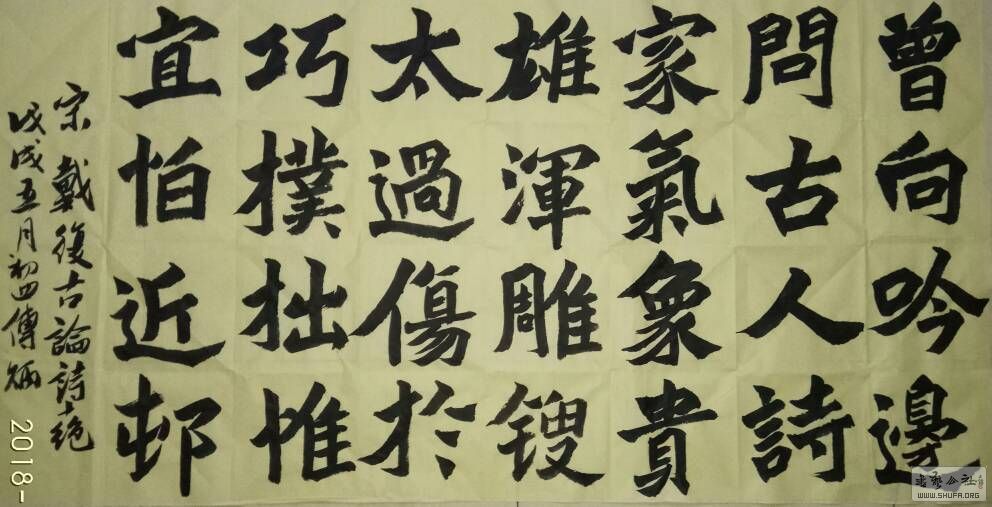 曾向吟邊
問古人詩
家氣象貴
雄渾雕鎪
太過傷於
巧撲拙惟
宜怕近邨
宋戴復古論詩十絕
戊戌五月初四傅炳
2018-
書法公社
WWW.SHUFA.ORG